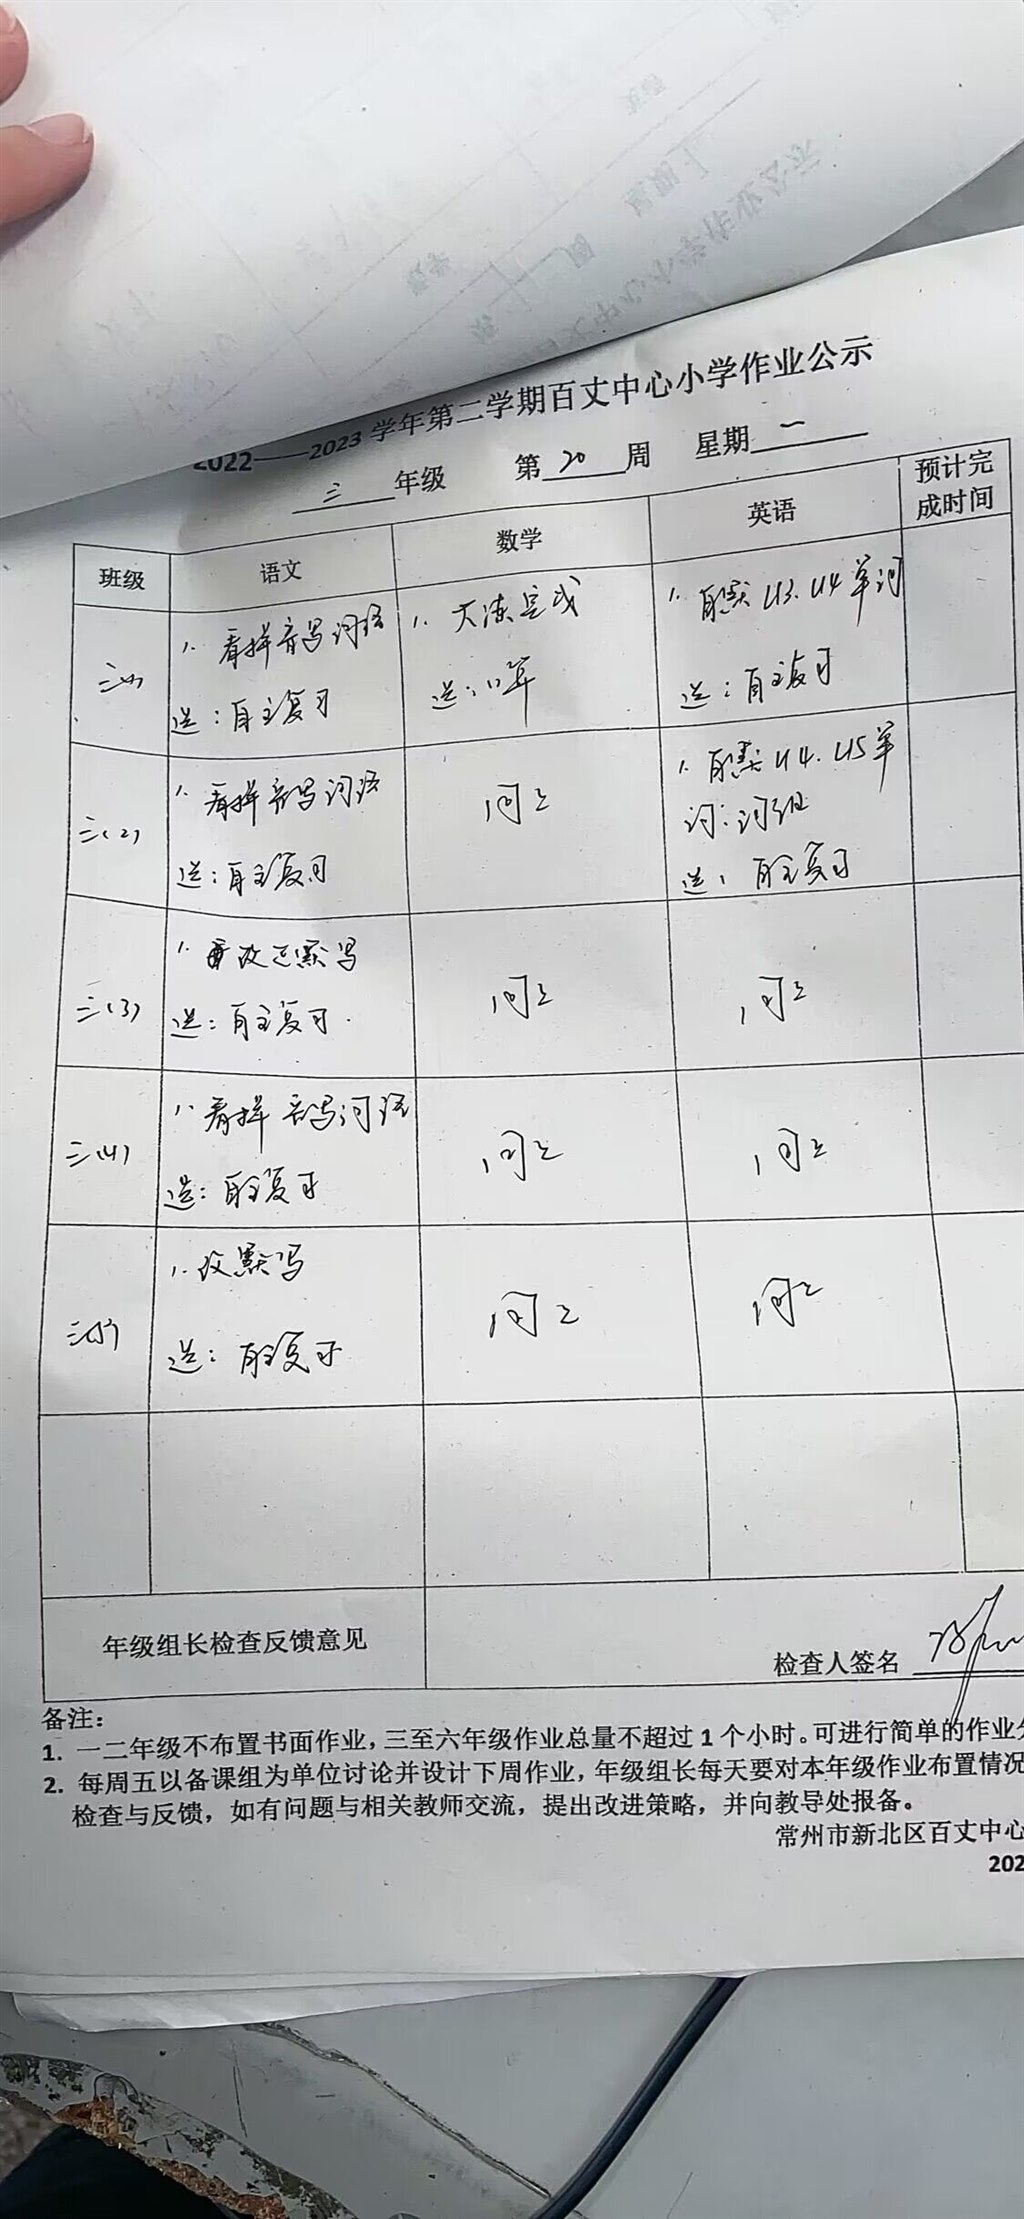 2022——2023 学年第二学期百丈中心小学作业公示
三 年级 第 20 周 星期 一
班级 语文 数学 英语 预计完成时间
三(1)
1. 看拼音写词语
选：自主复习
1. 大练完成
选：口算
1. 自默 U3. U4 单词
选：自主复习
三(2)
1. 看拼音写词语
选：自主复习
同上
1. 自默 U4. U5 单
词.词组
选：自主复习
三(3)
1. 改正默写
选：自主复习.
同上
同上
三(4)
1. 看拼音写词语
选：自主复习
同上
同上
三(5)
1. 改默写
选：自主复习
同上
同上
年级组长检查反馈意见
检查人签名
备注：
1. 一二年级不布置书面作业，三至六年级作业总量不超过 1 个小时。可进行简单的作业
2. 每周五以备课组为单位讨论并设计下周作业，年级组长每天要对本年级作业布置情况
检查与反馈，如有问题与相关教师交流，提出改进策略，并向教导处报备。
常州市新北区百丈中心
202